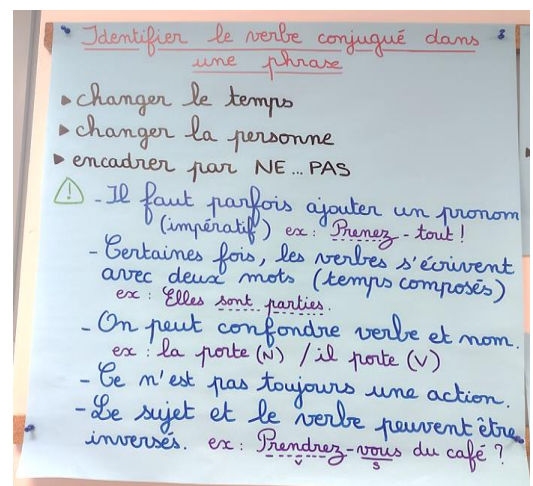 Identifier le verbe conjugué dans
une phrase
▸ changer le temps
▸ changer la personne
▸ encadrer par NE...PAS
⚠ - Il faut parfois ajouter un pronom
(impératif) ex : Prenez - tout !
- Certaines fois, les verbes s'écrivent
avec deux mots (temps composés)
ex : Elles sont parties.
- On peut confondre verbe et nom.
ex : la porte (N) / il porte (V)
- Ce n'est pas toujours une action.
- Le sujet et le verbe peuvent être
inversés. ex : Prendrez-vous du café ?
v s